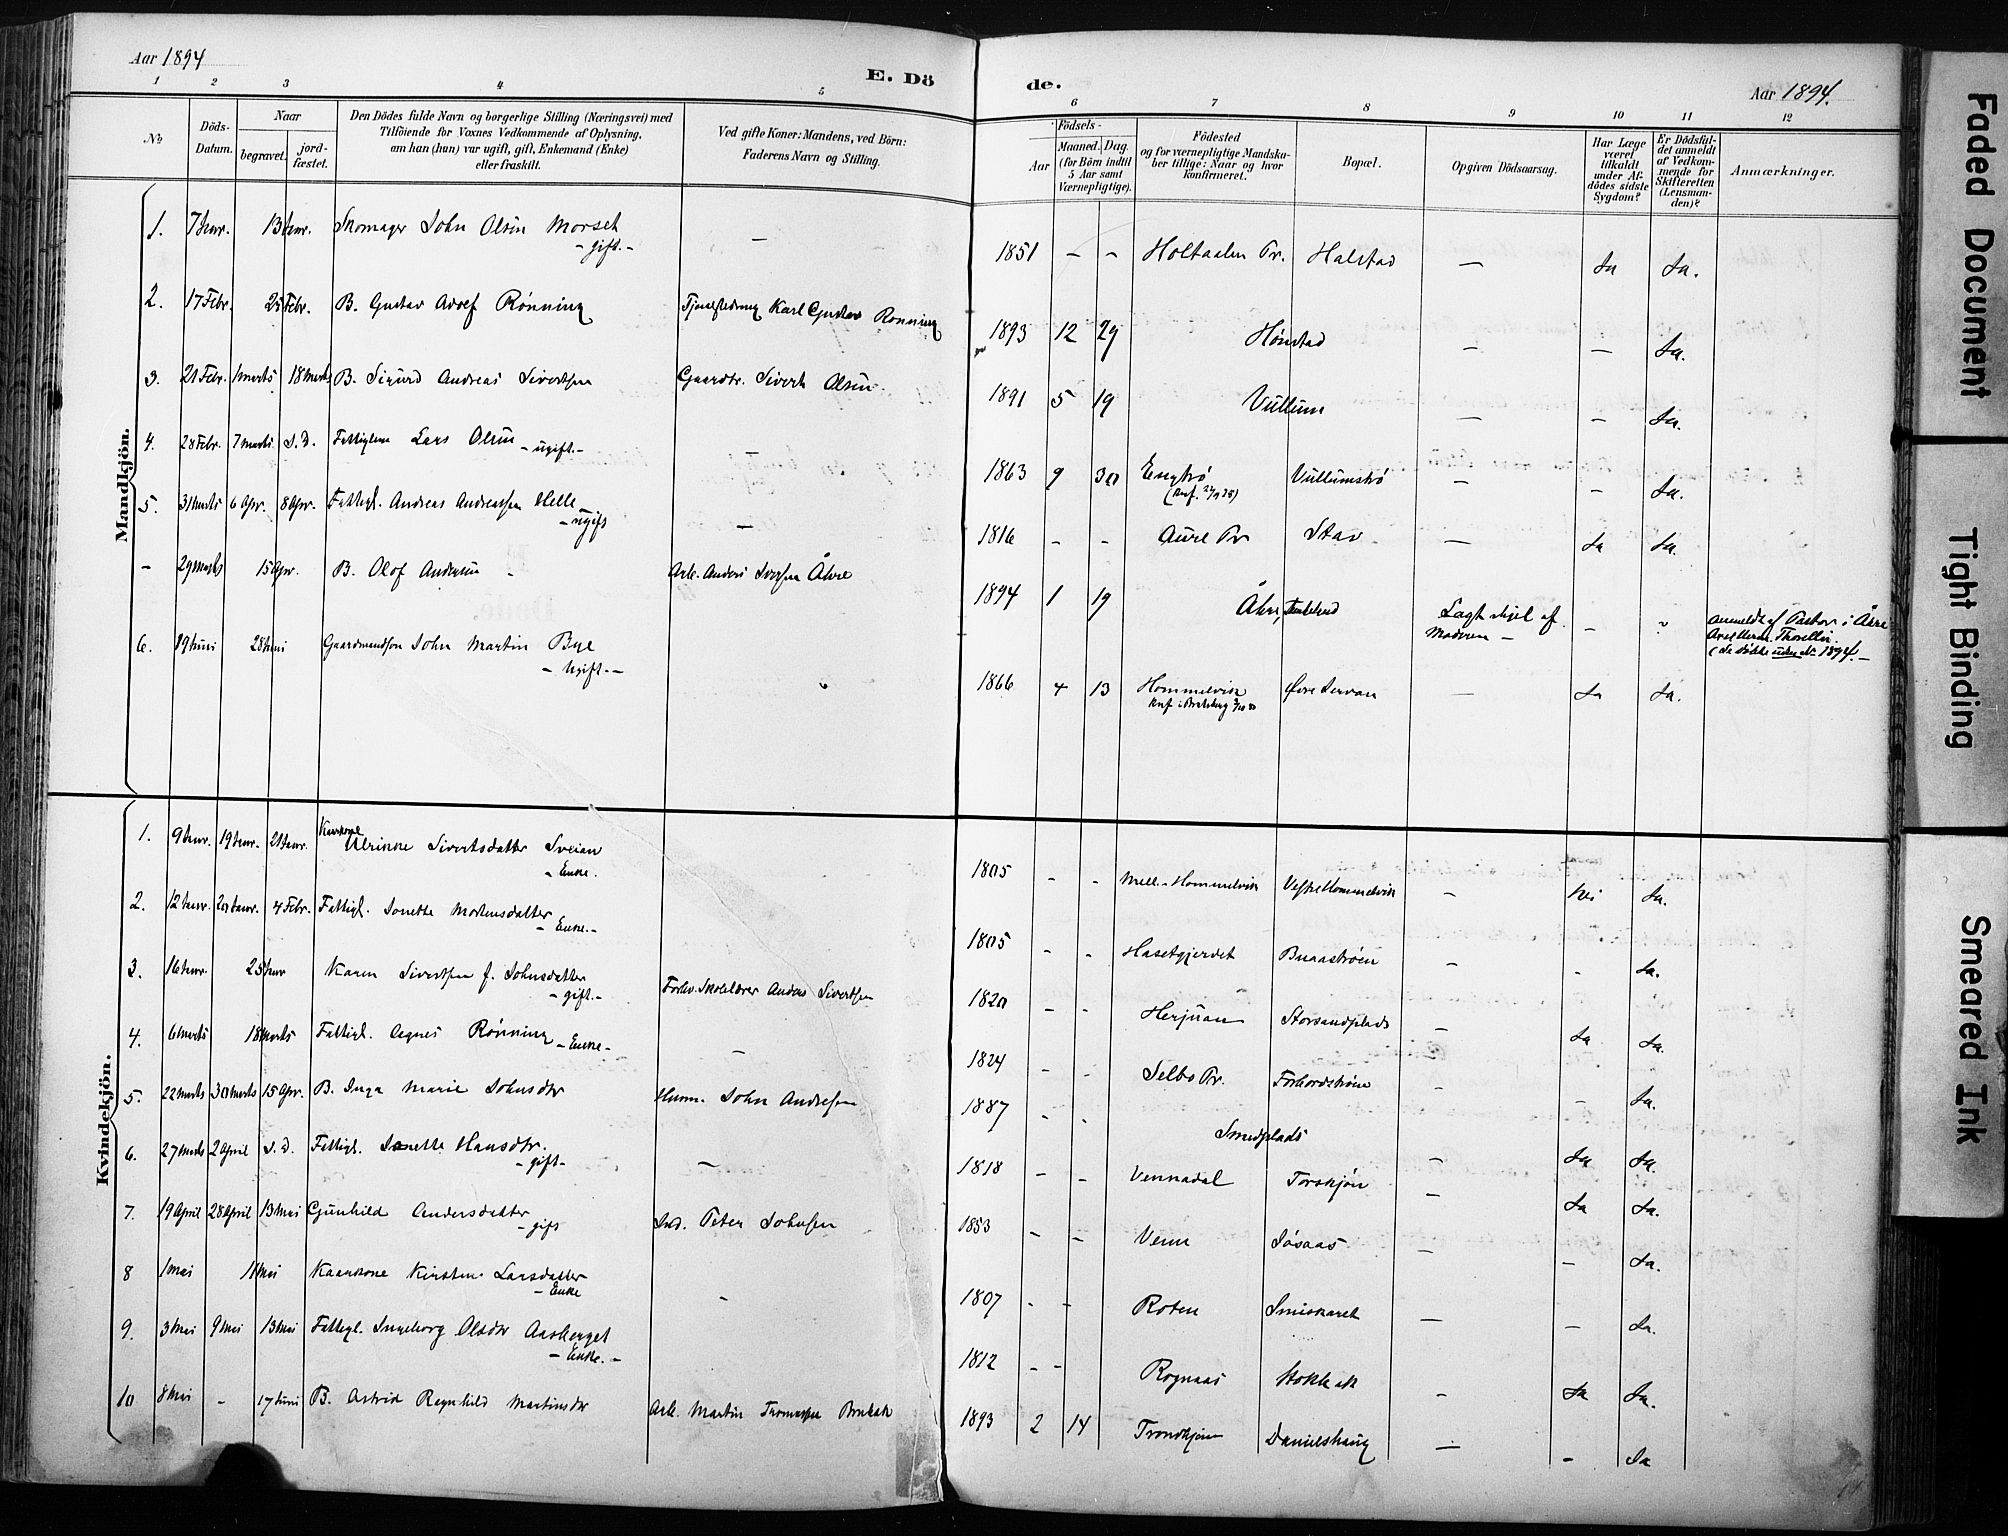 Aar 1894
E. Dö
de.
Aar 1894.
1 2 3 4 5 6 7 8 9 10 11 12
No
Döds-Datum.
Naar
begravet.
jord-fæstet.
Den Dödes fulde Navn og borgerlige Stilling (Næringsvei) med
Tilföiende for Voxnes Vedkommende af Oplysning,
om han (hun) var ugift, gift, Enkemand (Enke)
eller fraskilt.
Ved gifte Koner: Mandens, ved Börn:
Faderens Navn og Stilling.
Födsels-
Aar
Maaned. Dag.
(for Börn indtil
5 Aar samt
Værnepligtige).
Födested
og for værnepligtige Mandska-
ber tillige: Naar og hvor
konfirmeret.
Bopæl.
Opgiven Dödsaarsag.
Har Læge
været
tilkaldt
under Af-
dödes sidste
Sygdom?
Er Dödsfal-
det anmeldt
af Vedkom-
mende for
Skifteretten
(Lensman-
den)?
Anmærkninger.
Mandkjön.
1. 7 Janr. 13 Janr. Skomager John Olsen Morset – gift. – — 1851 – – Holtaalen Pr. Halstad — Ja Ja.
2. 17 Febr. 25 Febr. B. Gustav Adolf Rønning Karl Gustav Rønning 1893 12 29 Hønstad — — Ja.
3. 21 Febr. 1 Marts 18 Marts B. Sigurd Andreas Sivertsen Gaardbr. Sivert Olsen 1891 5 19 Vullum — – Ja.
4. 28 Febr. 7 Marts S.D. Fattiglem Lars Olsen – ugift. – 1863 9 30 Engtrø Vullumstrø — – Ja.
5. 31 Marts 6 Apr. 8 Apr. Fattigl. Andreas Andreassen Helle – ugift — 1816 – – Aure Pr Stav — Ja Ja.
– 29 Marts 15 Apr. B. Olof Andersen Arb. Anders Iversen Åhre 1894 1 19 Åhre, Lagt ihjel af Moderen – – Anmeldt af Pastor i Åre
Axel Herm. Thorellin.
uden No 1894. –
6. 19 Juni 28 Juni Gaardmandssøn John Martin Bye – Ugift. – 1866 4 13 Hommelvik Øvre Leruan — Ja Ja.
Kvindekjön.
1. 9 Janr. 19 Janr. 21 Janr. Kaarkone Ulrikke Sivertsdatter Sveian – Enke. 1805 – – Mell. Hommelvik Vestre Hommelvik – Nei Ja.
2. 12 Janr. 20 Janr. 4 Febr. Fattigl. Jonette Mortensdatter – Enke. – 1805 – – Hasetgjerdet Bruaastrøen – – Ja.
3. 16 Janr. 25 Janr Karen Sivertsen f. Johnsdatter – gift. – Forhv. Skolelærer Anders Sivertsen 1820 – – Herjuan Storsandplads – Ja Ja.
4. 6 Marts 18 Marts Fattigl. Agnes Rønning – Enke – – 1824 – – Selbo Pr. Forbordstrøen – – Ja.
5. 22 Marts 30 Marts 15 Apr. B. Inga Marie Johnsdtr Husm. John Andresen 1887 – – Smedplads – Ja Ja.
6. 27 Marts 2 April S.D. Fattigl. Jonetta Hansdtr. – gift – — 1818 – – Vennadal Torskjøn – Ja Ja.
7. 19 April 28 April 13 Mai Gjunhild Andersdatter – gift Ind. Peter Johnsen 1853 – – Venn Jøsaas – – Ja.
8 1 Mai 11 Mai Kaarkone Kirsten Larsdatter – Enke – 1807 – – Roten Smiskaret — – Ja.
9. 3 Mai 9 Mai 13 Mai Fattigl. Ingeborg Olsdtr Aasberget – Enke. – 1812 – – Rognaas Stokkak – Ja Ja.
10 8 Mai – 17 Juni B. Astrid Ragnhild Martinsdtr Arb. Martin Thomassen Brubak 1893 2 14 Trondhjem Danielshaug — – Ja
Faded Document
Tight Binding
Smeared Ink